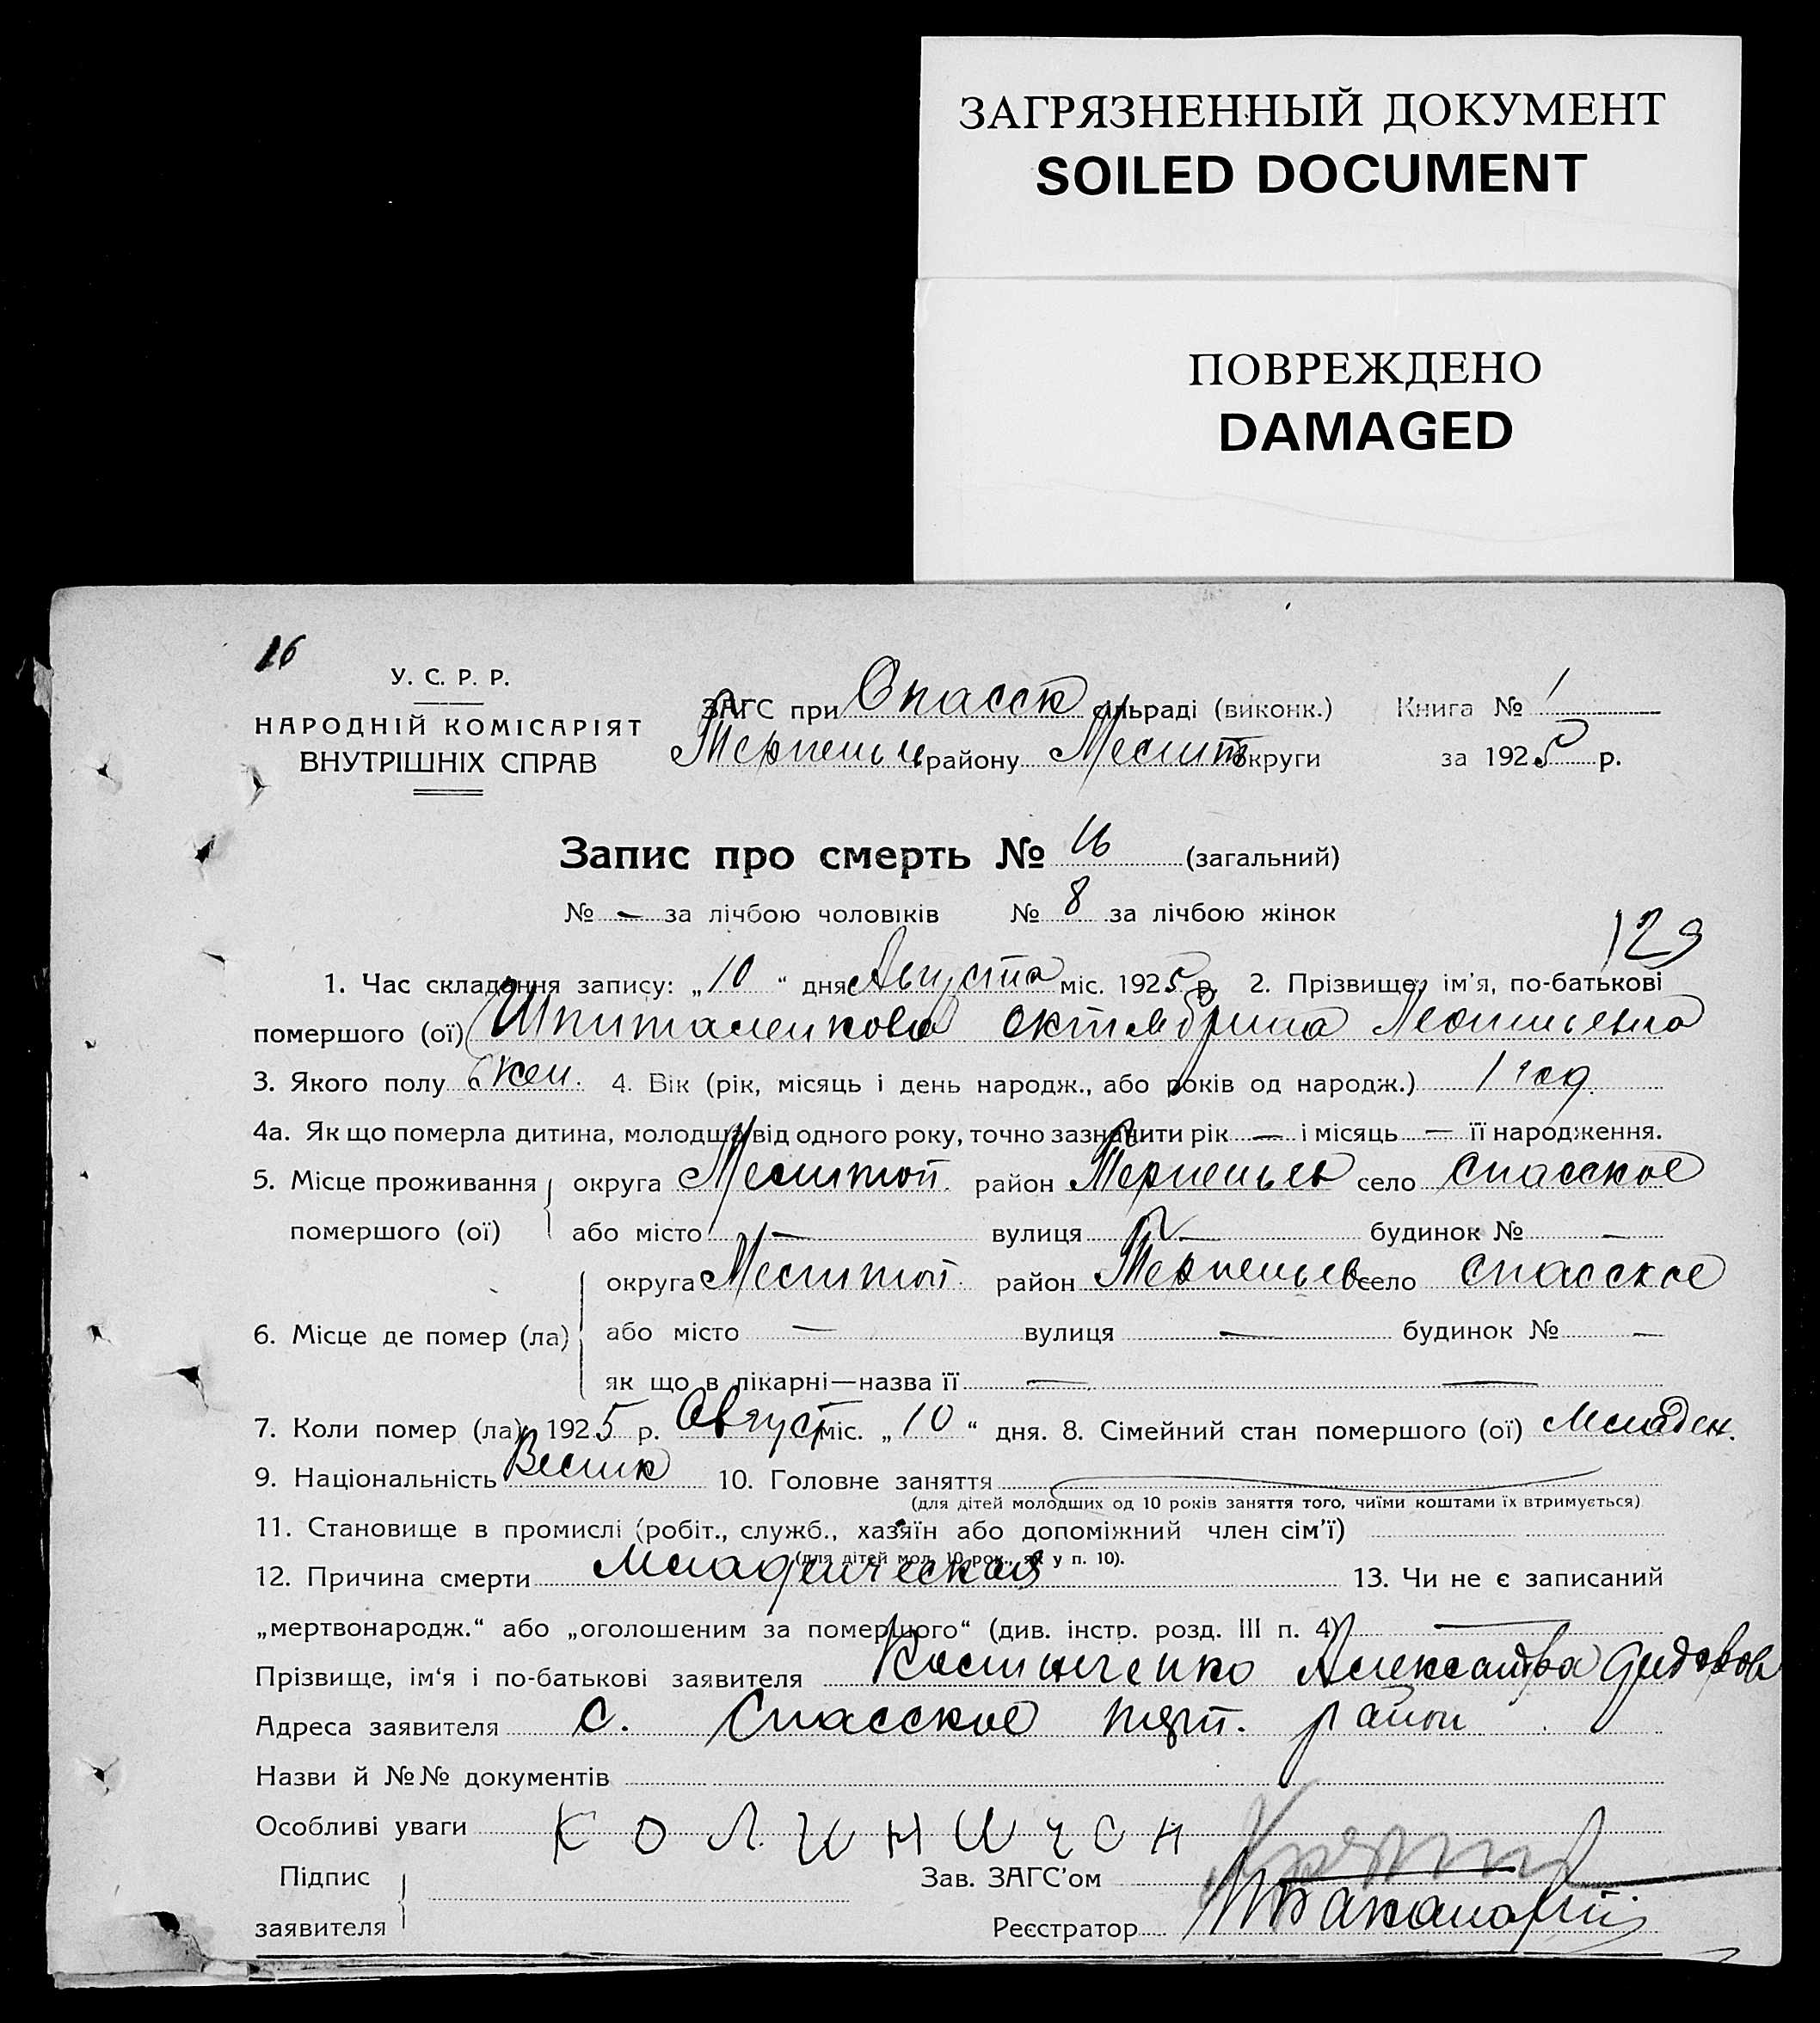 ЗАГРЯЗНЕННЫЙ ДОКУМЕНТ
SOILED DOCUMENT
ПОВРЕЖДЕНО
DAMAGED
16
У. С. Р. Р.
НАРОДНІЙ КОМІСАРІЯТ
ВНУТРІШНІХ СПРАВ
ЗАГС при Спасск сільраді (виконк.) Книга № 1
району Мелит округи за 1925 р.
Запис про смерть № 16 (загальний)
№ — за лічбою чоловіків № 8 за лічбою жінок
123
1. Час складання запису: „10“ дня Августа міс. 1925 р. 2. Прізвище, ім'я, по-батькові
помершого (ої) Октябрина
3. Якого полу жен. 4. Вік (рік, місяць і день народж., або років од народж.) 1 год.
4а. Як що померла дитина, молодша від одного року, точно зазначити рік — і місяць — її народження.
5. Місце проживання округа Мелитоп. район село Спасское
помершого (ої) або місто — вулиця — будинок № —
округа Мелитоп. район село Спасское
6. Місце де помер (ла) або місто — вулиця — будинок № —
як що в лікарні—назва її —
7. Коли помер (ла) 1925 р. Август міс. „10“ дня. 8. Сімейний стан помершого (ої) Младен.
9. Національність 10. Головне заняття
(для дітей молодших од 10 років заняття того, чиїми коштами їх втримується)
11. Становище в промислі (робіт., служб., хазяїн або допоміжний член сім'ї)
(для дітей мол. 10 рок., як у п. 10).
12. Причина смерти Младенческая 13. Чи не є записаний
„мертвонародж.“ або „оголошеним за помершого“ (див. інстр. розд. III п. 4) —
Прізвище, ім'я і по-батькові заявителя Александра
Адреса заявителя с. Спасское район
Назви й №№ документів
Особливі уваги
Підпис
заявителя
Зав. ЗАГС'ом
Реєстратор